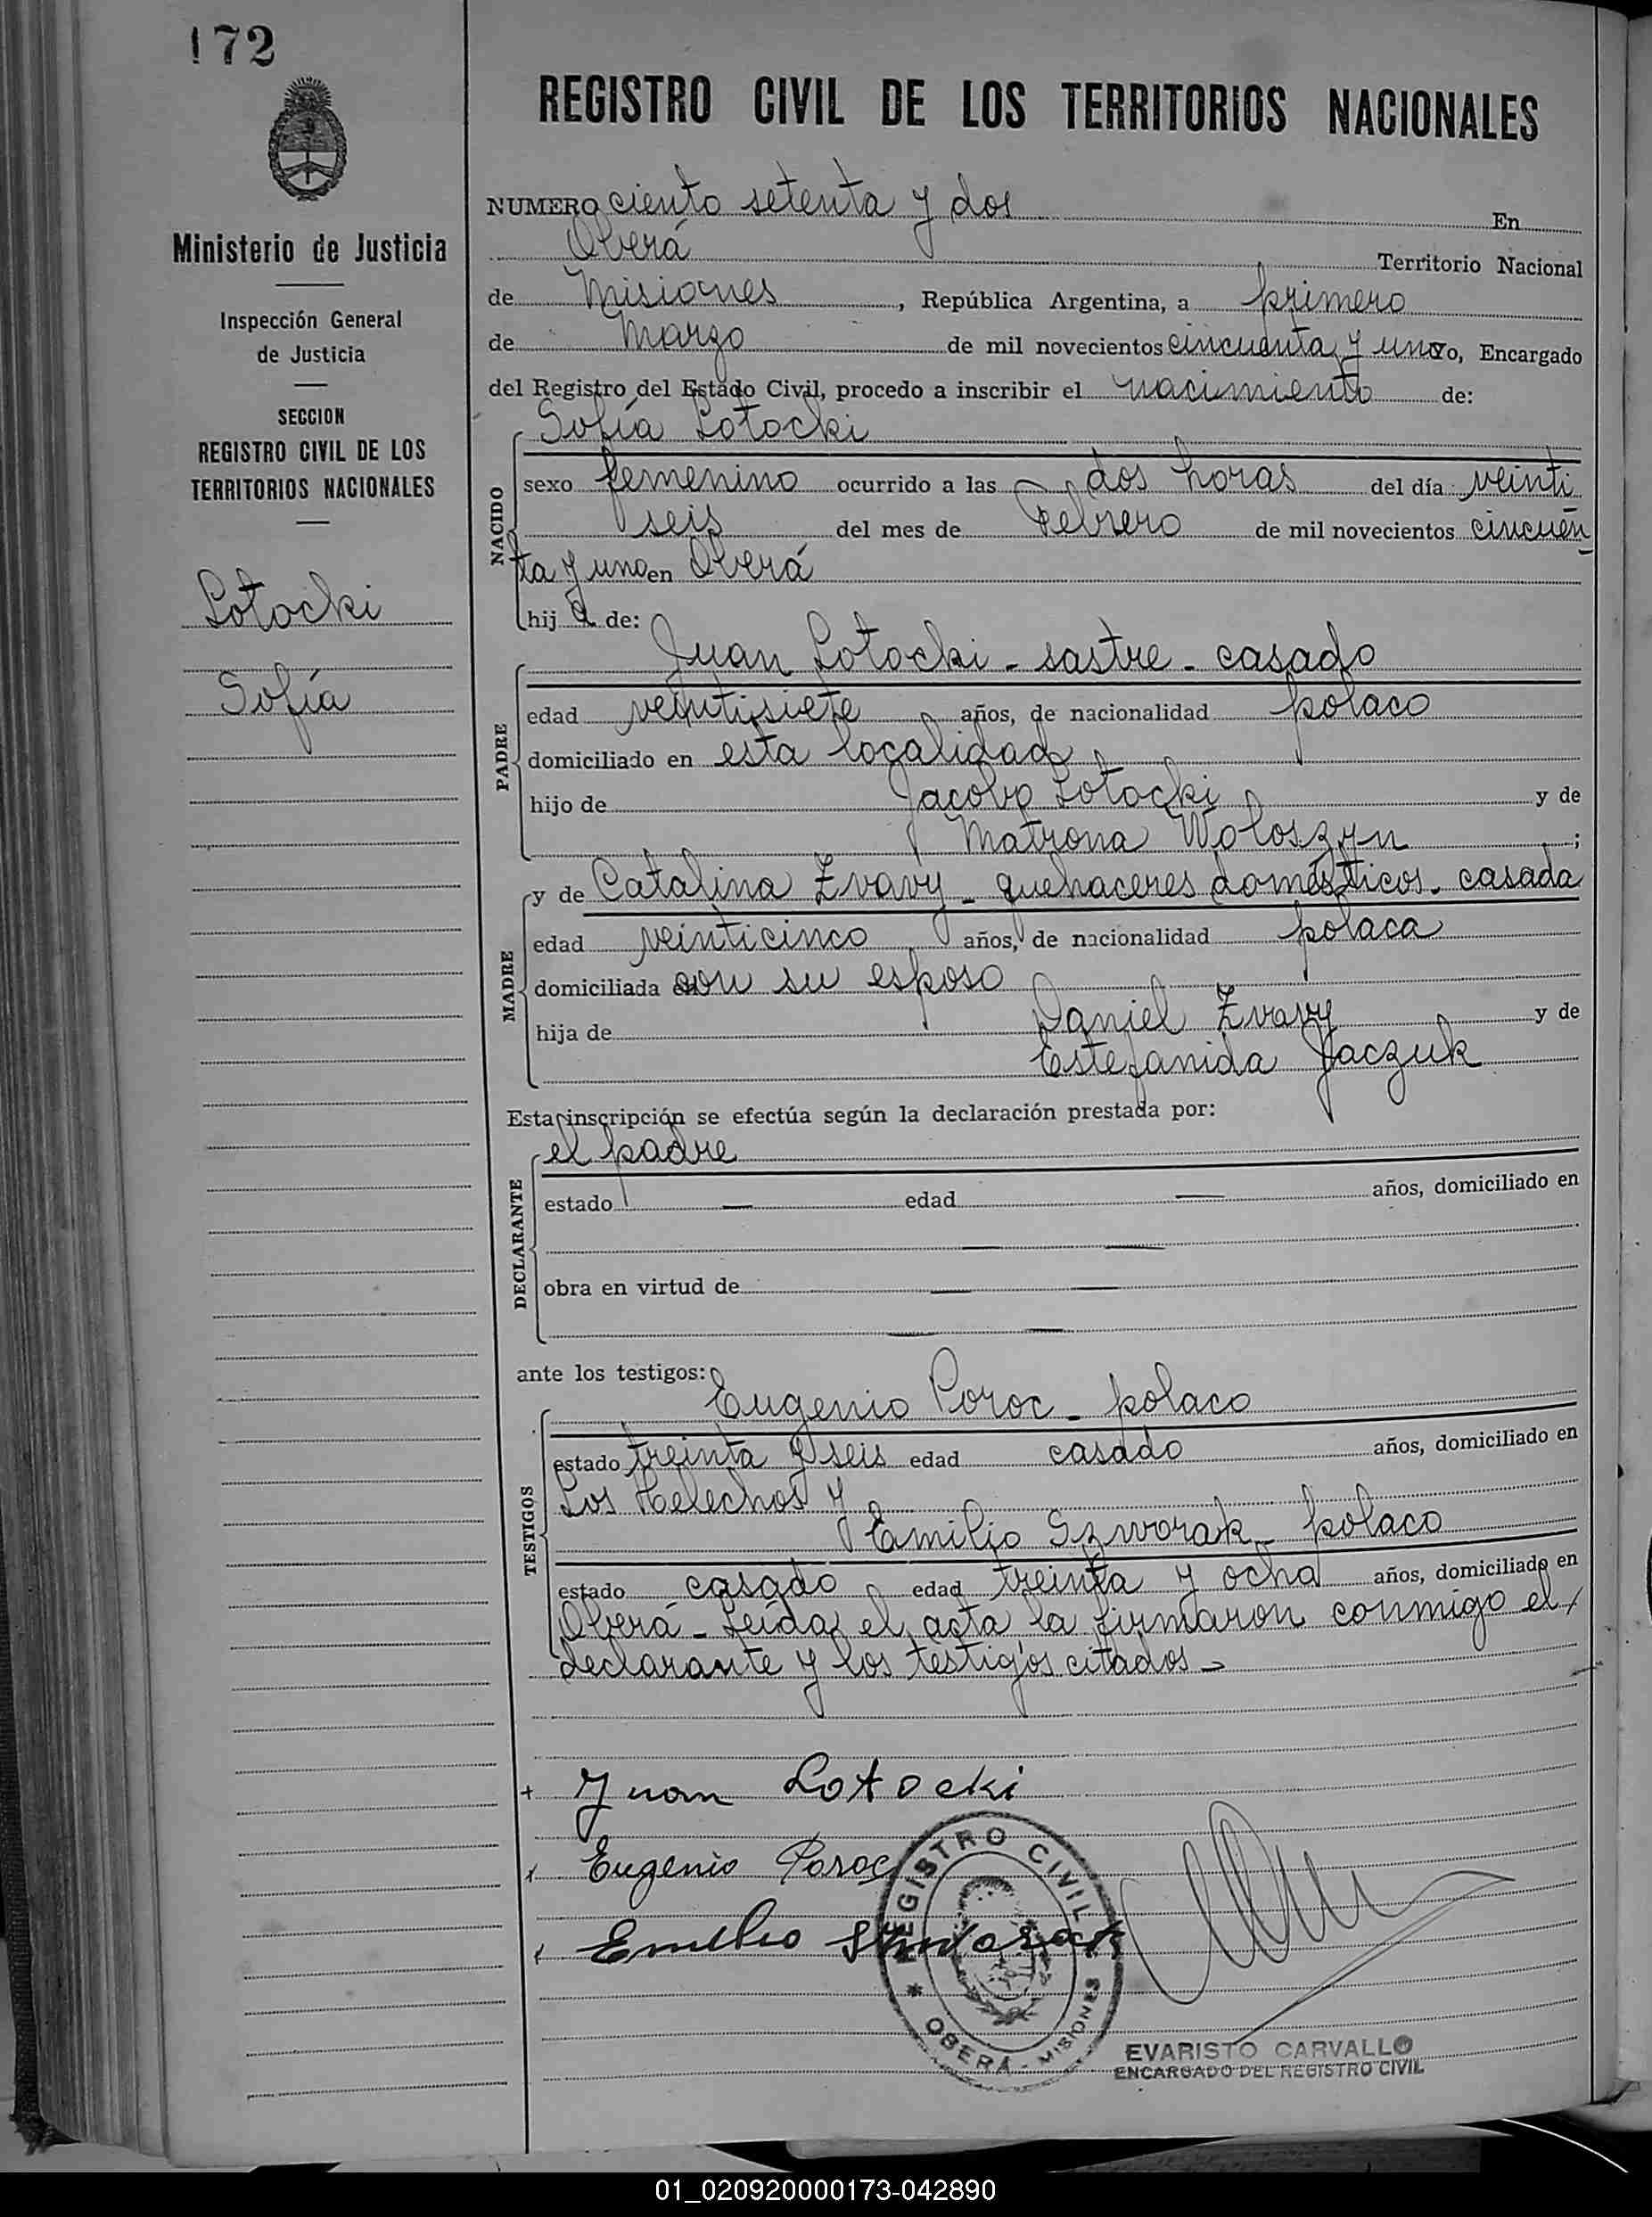 172
Ministerio de Justicia
Inspección General
de Justicia
SECCION
REGISTRO CIVIL DE LOS
TERRITORIOS NACIONALES
Lotocki
Sofía
REGISTRO CIVIL DE LOS TERRITORIOS NACIONALES
NUMERO ciento setenta y dos En
Oberá Territorio Nacional
de Misiones, República Argentina, a primero
de Marzo de mil novecientos cincuenta y uno yo, Encargado
del Registro del Estado Civil, procedo a inscribir el nacimiento de:
Sofía Lotocki
NACIDO
sexo femenino ocurrido a las dos horas del día veinti
seis del mes de Febrero de mil novecientos cincuen
ta y uno en Oberá
hija de:
Juan Lotocki - sastre - casado
PADRE
edad veintisiete años, de nacionalidad polaco
domiciliado en esta localidad
hijo de Jacobo Lotocki y de
Matrona Woloszyn;
MADRE
y de Catalina Zvavy - quehaceres domésticos - casada
edad veinticinco años, de nacionalidad polaca
domiciliada con su esposo
hija de Daniel Zvavy y de
Estefanida Jaczuk
Esta inscripción se efectúa según la declaración prestada por:
el padre
DECLARANTE
estado — edad — años, domiciliado en
— —
obra en virtud de — —
— —
ante los testigos:
Eugenio Poroc - polaco
TESTIGOS
estado treinta y seis edad casado años, domiciliado en
Los Helechos y
Emilio Szworak - polaco
estado casado edad treinta y ocho años, domiciliado en
Oberá - Leída el acta la firmaron conmigo el
declarante y los testigos citados -
Juan Lotocki
Eugenio Poroc
Emilio Szworak
REGISTRO CIVIL
* OBERÁ - MISIONES
EVARISTO CARVALLO
ENCARGADO DEL REGISTRO CIVIL
01_020920000173-042890